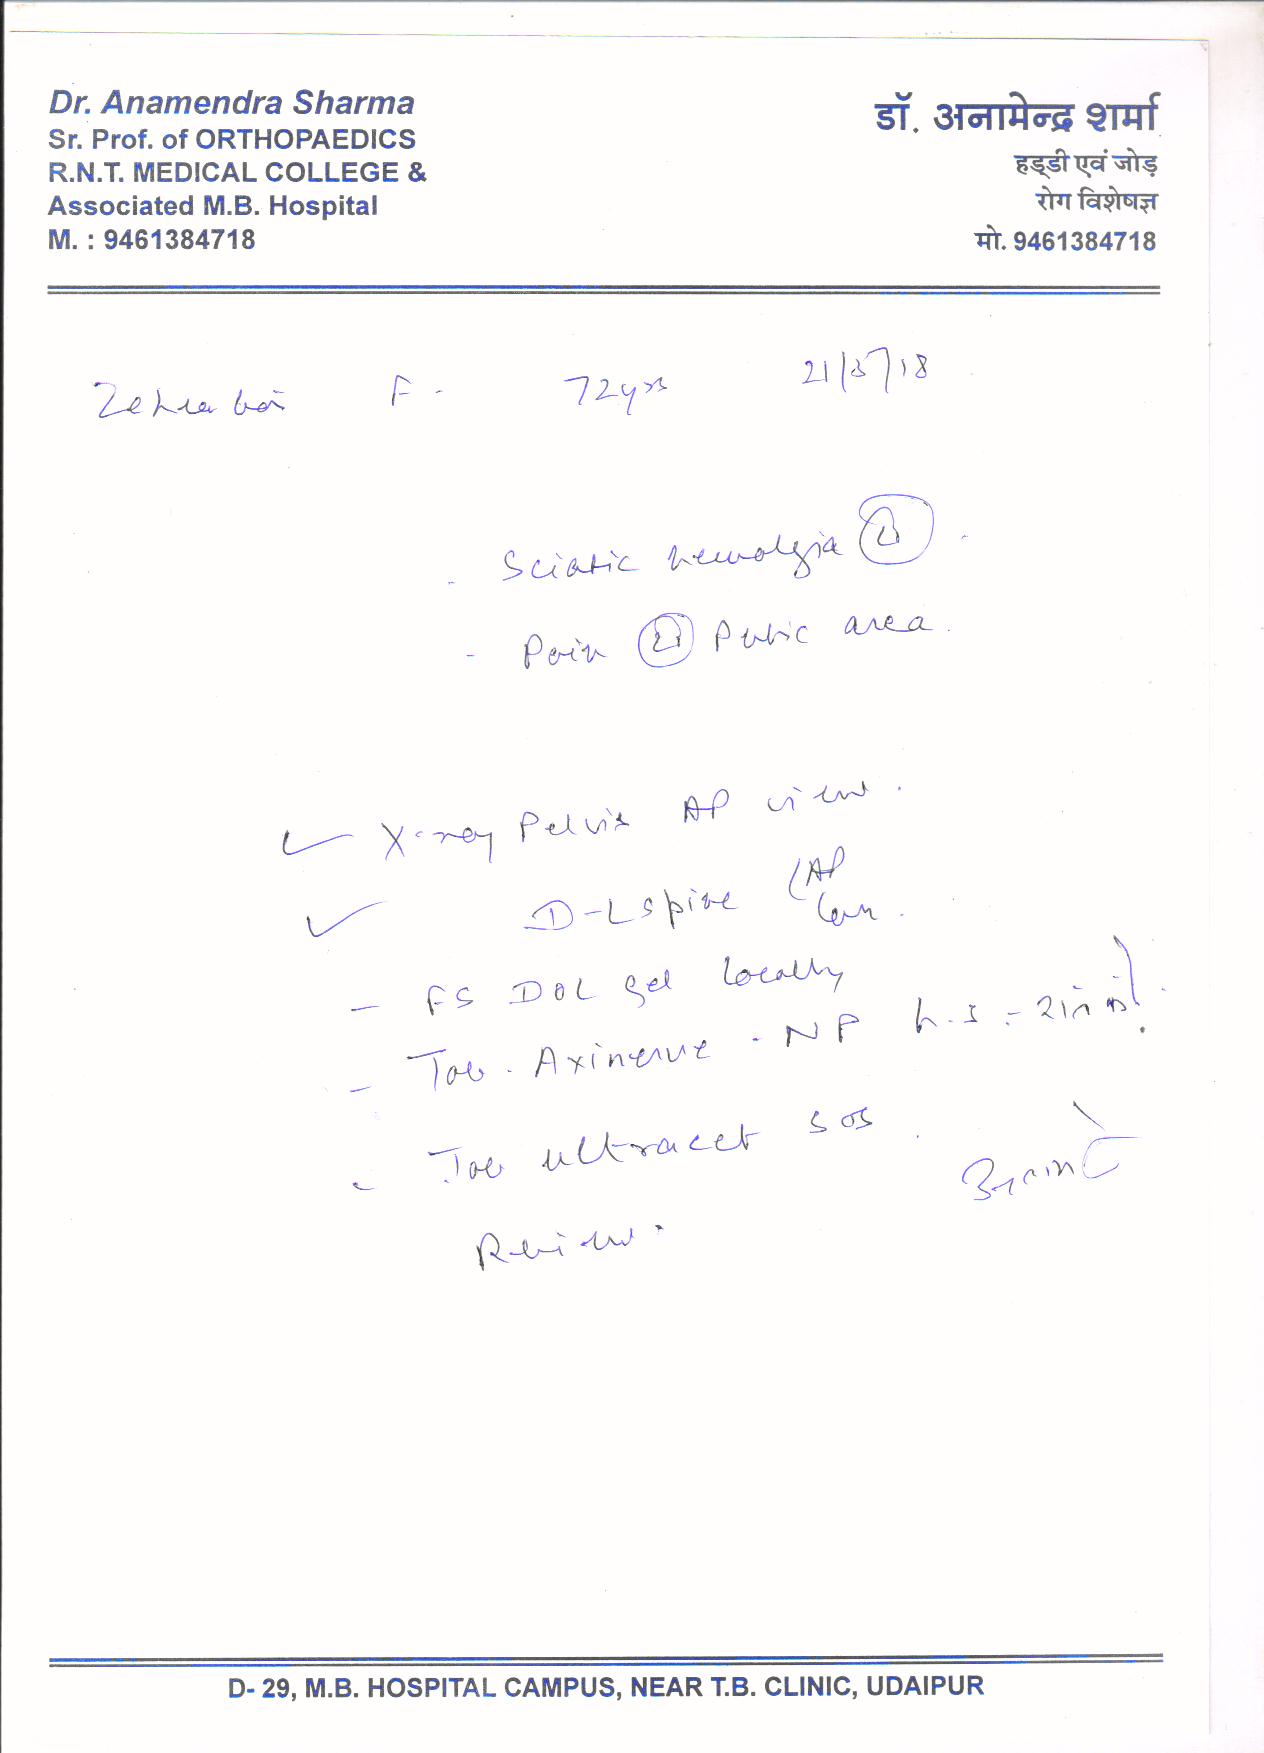 Dr. Anamendra Sharma
Sr. Prof. of ORTHOPAEDICS
R.N.T. MEDICAL COLLEGE &
Associated M.B. Hospital
M. : 9461384718
डॉ. अनामेन्द्र शर्मा
हड्डी एवं जोड़
रोग विशेषज्ञ
मो. 9461384718
Zehra bai F - 72yrs 21/3/18
- Sciatic neuralgia
- Pain Pubic area.
X-ray Pelvis AP view.
D-L Spine (AP
- FS DOL gel locally
- Tab. Axinerve - NP h.s.
- Tab ultracet sos
Review.
D- 29, M.B. HOSPITAL CAMPUS, NEAR T.B. CLINIC, UDAIPUR